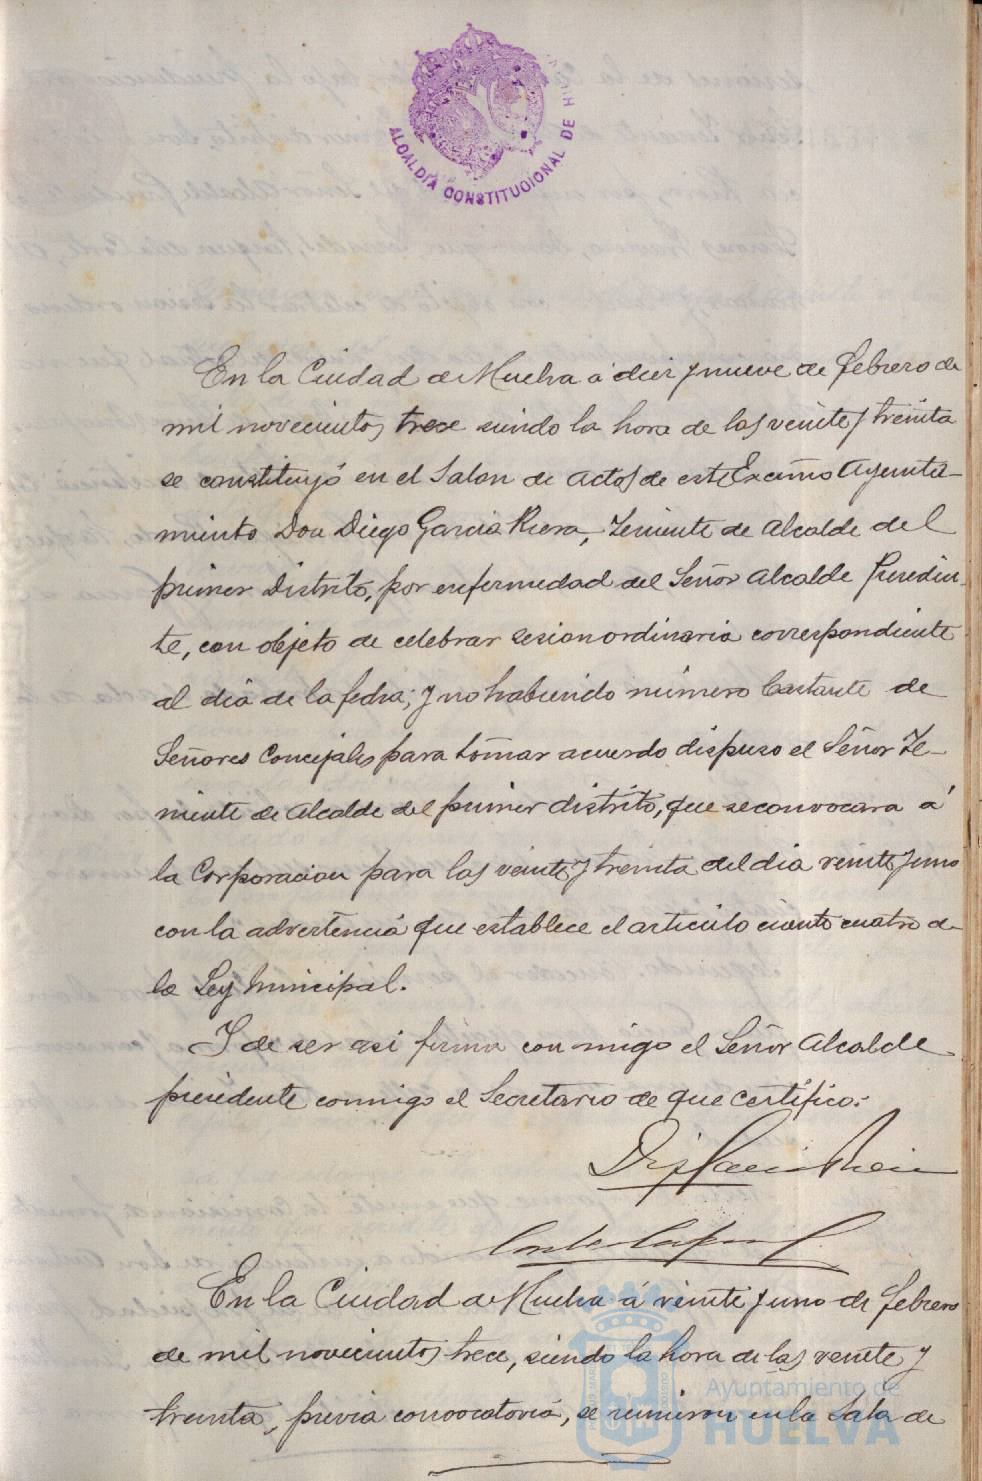 ALCALDÍA CONSTITUCIONAL DE H
En la Ciudad de Huelva á diez y nueve de febrero de
mil novecientos trece siendo la hora de las veinte y treinta
se constituyó en el Salon de actos de este Excmo Ayunta-
miento Don Diego Garcia Riera, Teniente de Alcalde del
primer Distrito, por enfermedad del Señor Alcalde Presiden-
te, con objeto de celebrar sesion ordinaria correspondiente
al dia de la fecha; y no habiendo número bastante de
Señores Concejales para tomar acuerdo dispuso el Señor Te-
niente de Alcalde del primer distrito, que se convocara á
la Corporacion para las veinte y treinta del dia veinte y uno
con la advertencia que establece el articulo ciento cuatro de
la Ley Municipal.
Y de ser asi firma con migo el Señor Alcalde
presidente conmigo el Secretario de que certifico.
En la Ciudad de Huelva á veinte y uno de febrero
de mil novecientos trece, siendo la hora de las veinte y
treinta, previa convocatoria, se reunieron en la Sala de
Ayuntamiento de
HUELVA